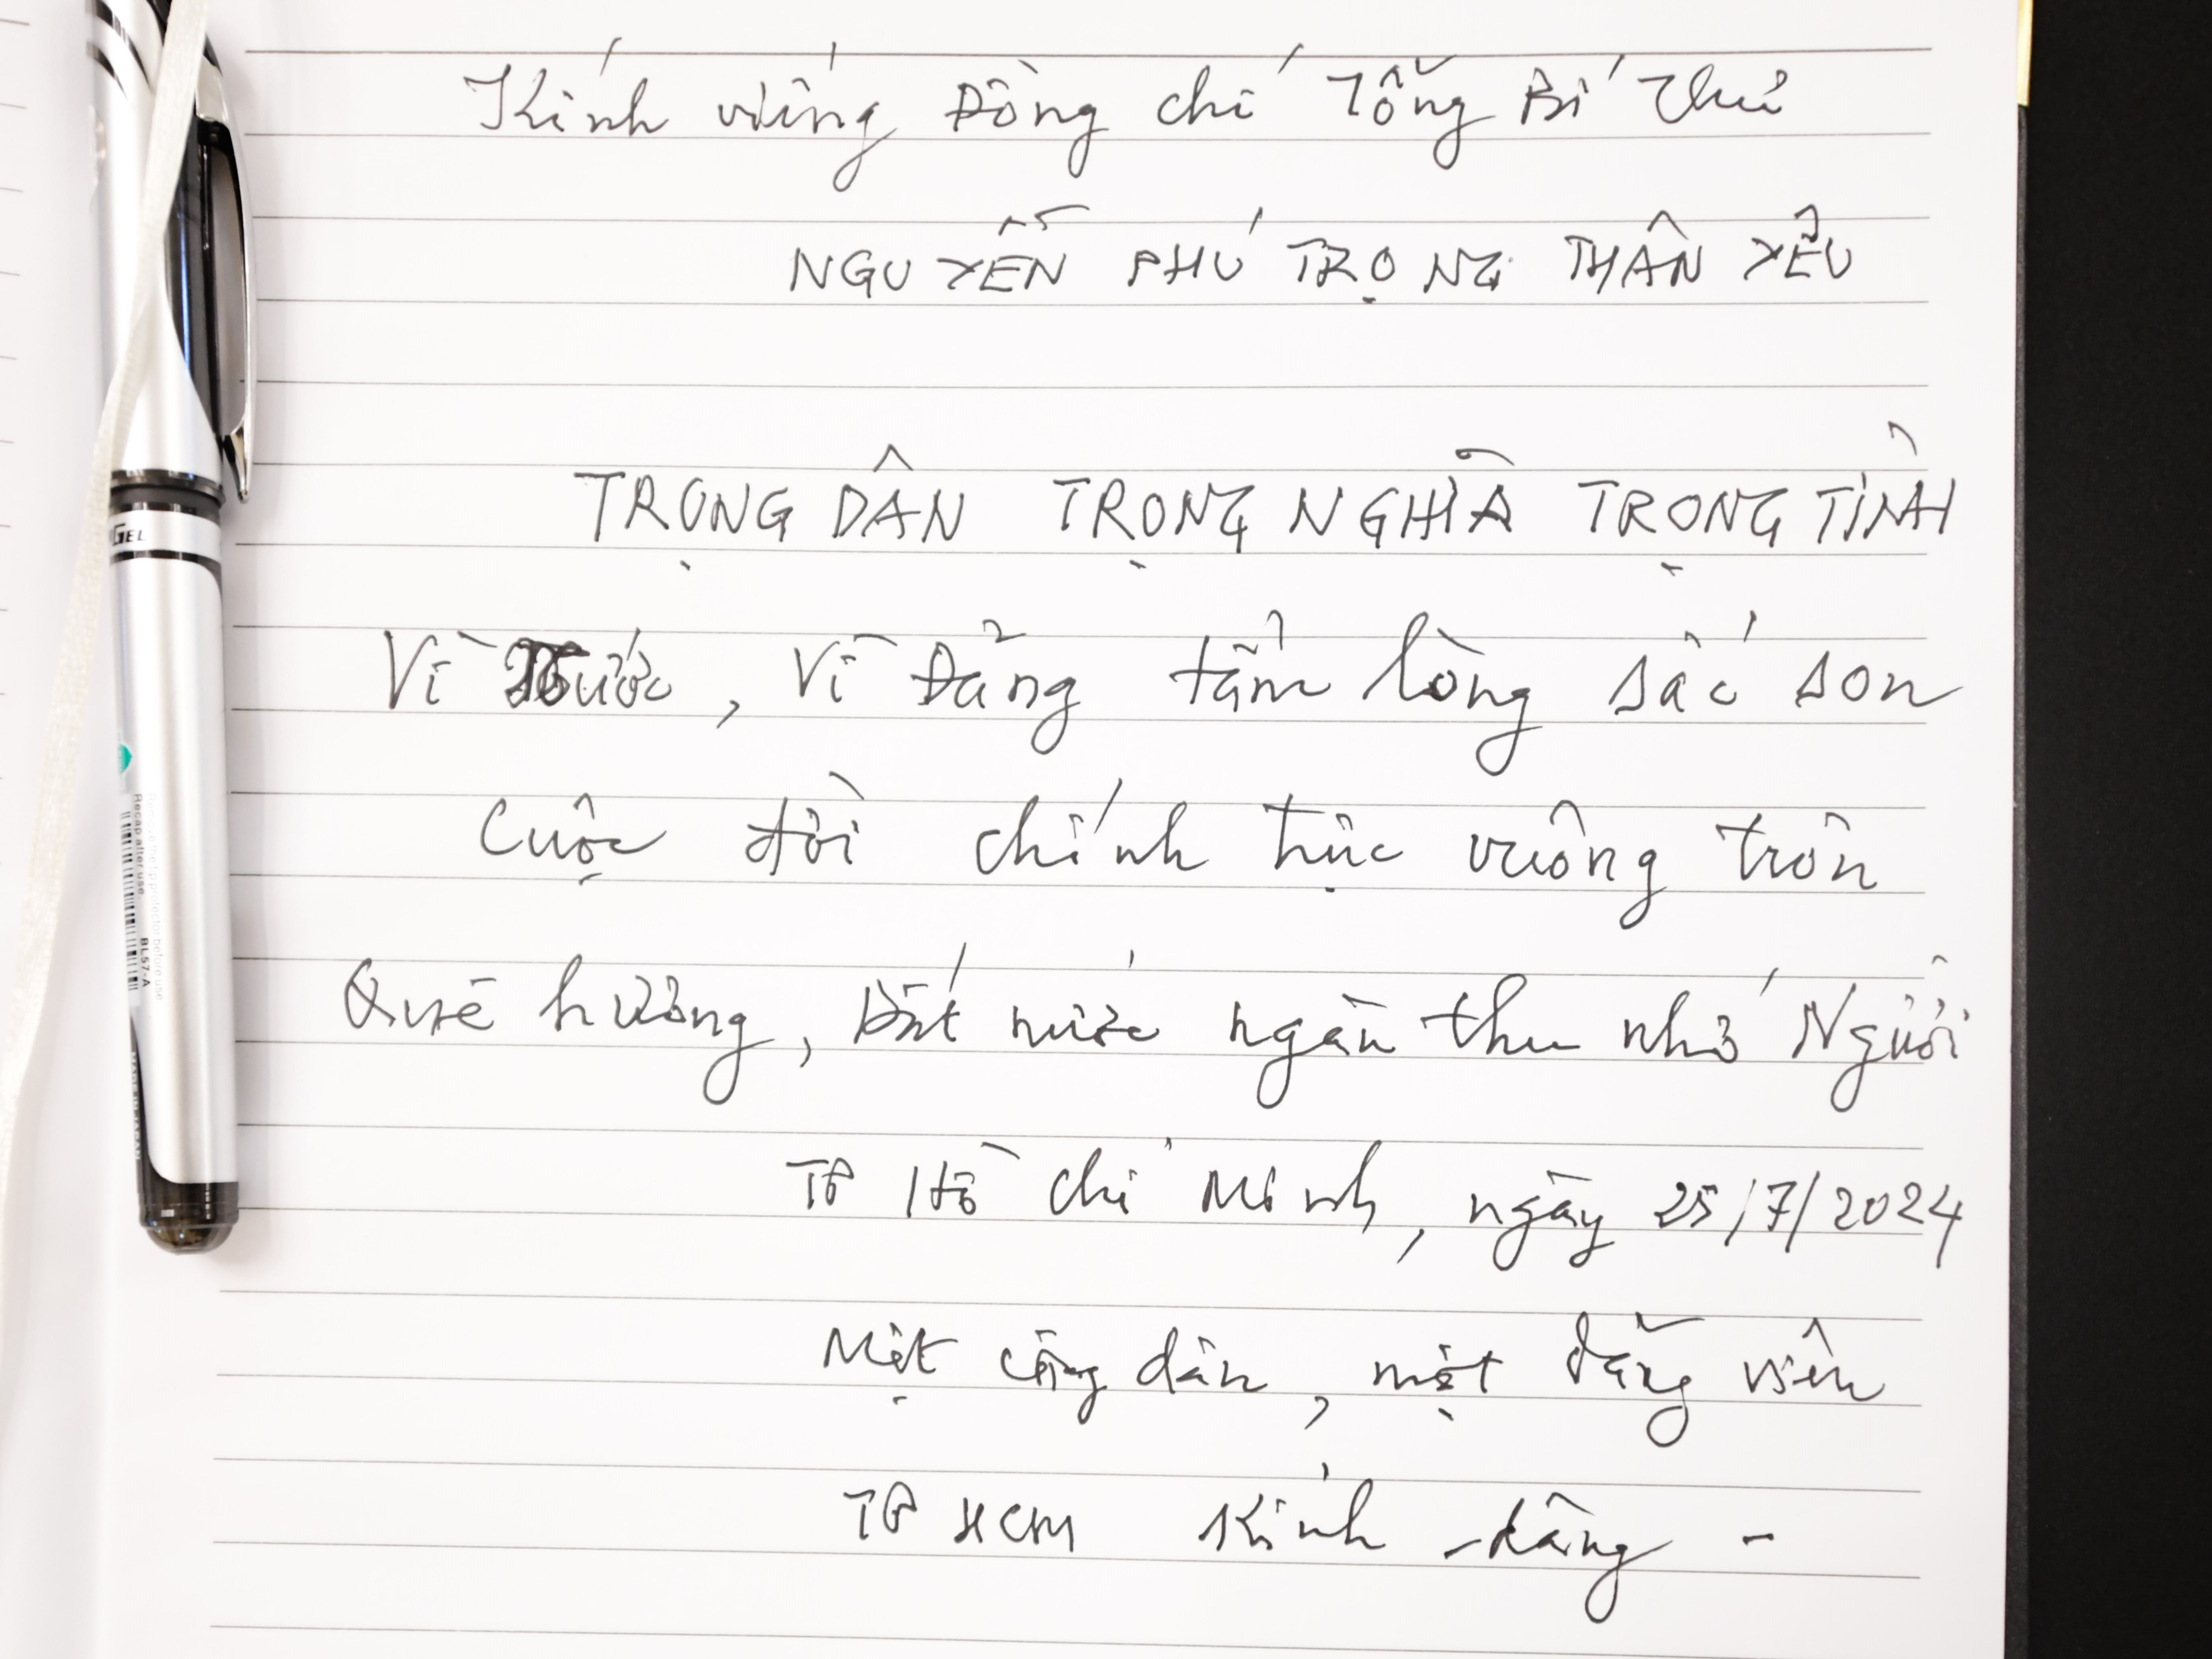 Kính viếng Đồng chí Tổng Bí thư
NGUYỄN PHÚ TRỌNG THÂN YÊU
TRỌNG DÂN TRỌNG NGHĨA TRỌNG TÌNH
Vì Nước, Vì Đảng tấm lòng sắc son
Cuộc đời chính trực vuông tròn
Quê hương, Đất nước ngàn thu nhớ Người
TP Hồ Chí Minh, ngày 25/7/2024
Một công dân, một đảng viên
TP HCM Kính dâng -
GEL
Recap after use BL57-A